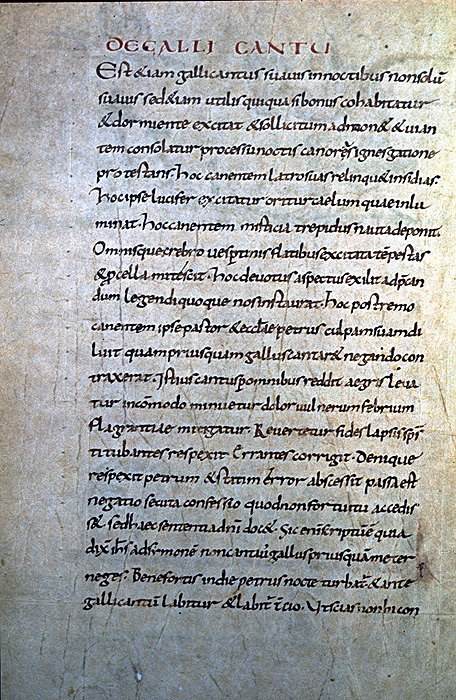 DE GALLI CANTU
Est &iam galli cantus suauis in noctibus non solū
suauis sed &iam utilis qui quasi bonus cohabitatur
& dormiente excitat & sollicitum admon& & uian
tem consolatur processū noctis canora significatione
protestans. hoc canentem latro suas relinqu& insidias.
hoc ipse lucifer excitatur oritur caelum quae inlu
minat. hoc canentem mesticia trepidus nauta deponit.
Omnisque crebro uespertinis flatibus excitata tēpestas
& pcella mitescit. hoc deuotus aspectus exilit ad pcan
dum legendi quoque nos instaurat. hoc postremo
canentem ipse pastor & ecclae petrus culpam suam di
luit quam priusquam gallus cantar& negando con
traxerat. Istius cantus pomnibus reddit aegris leua
tur incōmodo minuetur dolor uulnerum febrium
flagrantiae mitigatur. Reuertetur fides lapsis ihs
titubantes respexit Errantes corrigit. Denique
respexit petrum & statim error abscessit passa est
negatio secuta confessio quod non fortuitu accedis
s& sed haec sententia dn̄i doc&. Sic enī scriptū ē quia
dix ihs ad simone non cantauit gallus prius quā me ter
neges. Bene fortis in die petrus nocte turbat. & ante
galli cantū labitur & labit t̄cio. Ut scias non in con